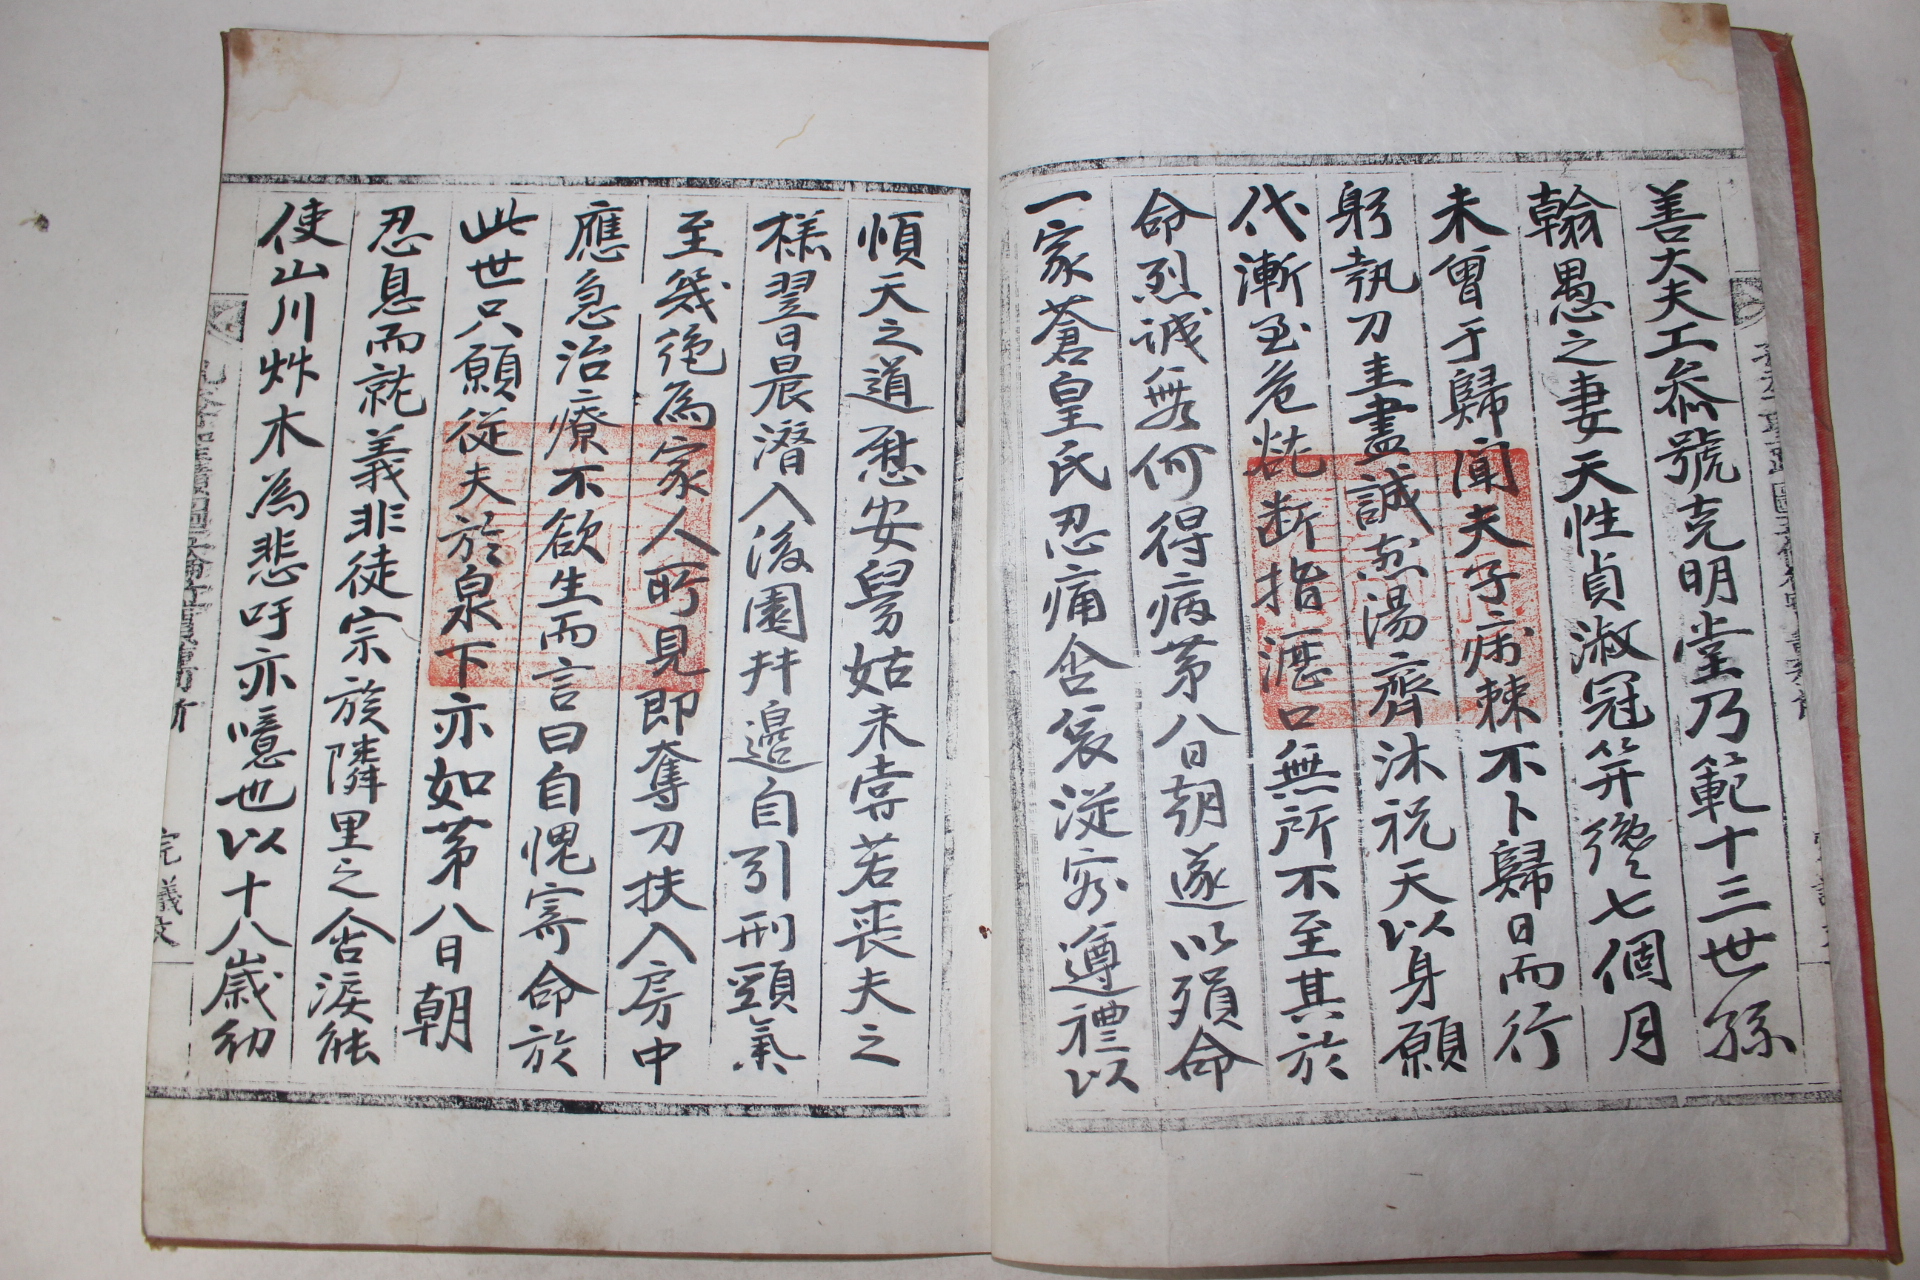 善大夫工叅號克明堂乃範十三世孫
翰愚之妻天性貞淑冠笄纔七個月
未曾于歸聞夫子病棘不卜歸日而行
躬執刀圭盡誠煎湯齊沐祝天以身願
代漸至危 断指瀝口無所不至其於
命烈誠無何得病苐八日朝遂以殞命
一家蒼皇氏忍痛含哀從容遵禮以
順天之道慰安舅姑未甞若喪夫之
樣翌日晨潛入後園井邉自引刑頸氣
至幾绝為家人所見即奪刀扶入房中
應急治療不欲生而言曰自愧寄命於
此世只願従夫於泉下亦如苐八日朝
忍息而就義非徒宗族隣里之含淚能
使山川艸木為悲吁亦噫也以十八歲初
完議文